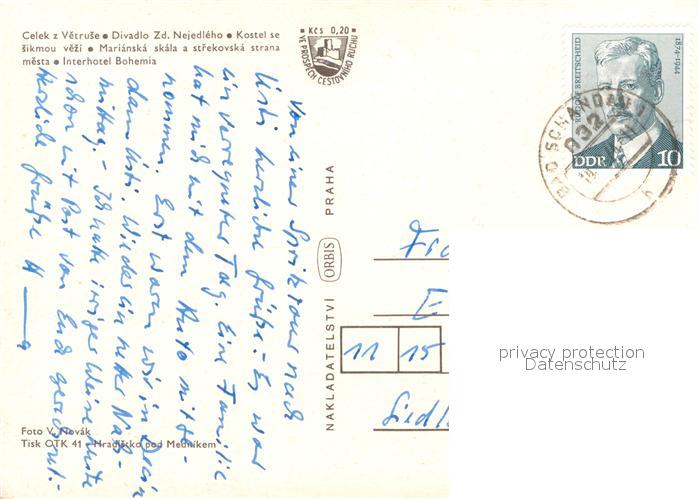 Celek z Větruše • Divadlo Zd. Nejedlého • Kostel se
šikmou věží • Mariánská skála a střekovská strana
města • Interhotel Bohemia
• Kčs 0,20 •
VE PROSPĚCH CESTOVNÍHO RUCHU
RUDOLF BREITSCHEID
1874-1944
DDR 10
BAD SCHANDAU 1
832
Von einer Spritztour nach
Ústí herzliche Grüße. - Es war
ein verregneter Tag. Eine Familie
hat mich mit dem Auto mitge-
nommen. Erst waren wir in
dann Ústí. Wieder in netter Nach-
mittag. - Ich hatte irrigerweise heute
schon mit Post von Euch gerechnet.
Herzliche Grüße H
NAKLADATELSTVÍ ORBIS PRAHA
11 15
Siedl
privacy protection
Datenschutz
Foto V. Novák
Tisk OTK 41 - Hradištko pod Medníkem